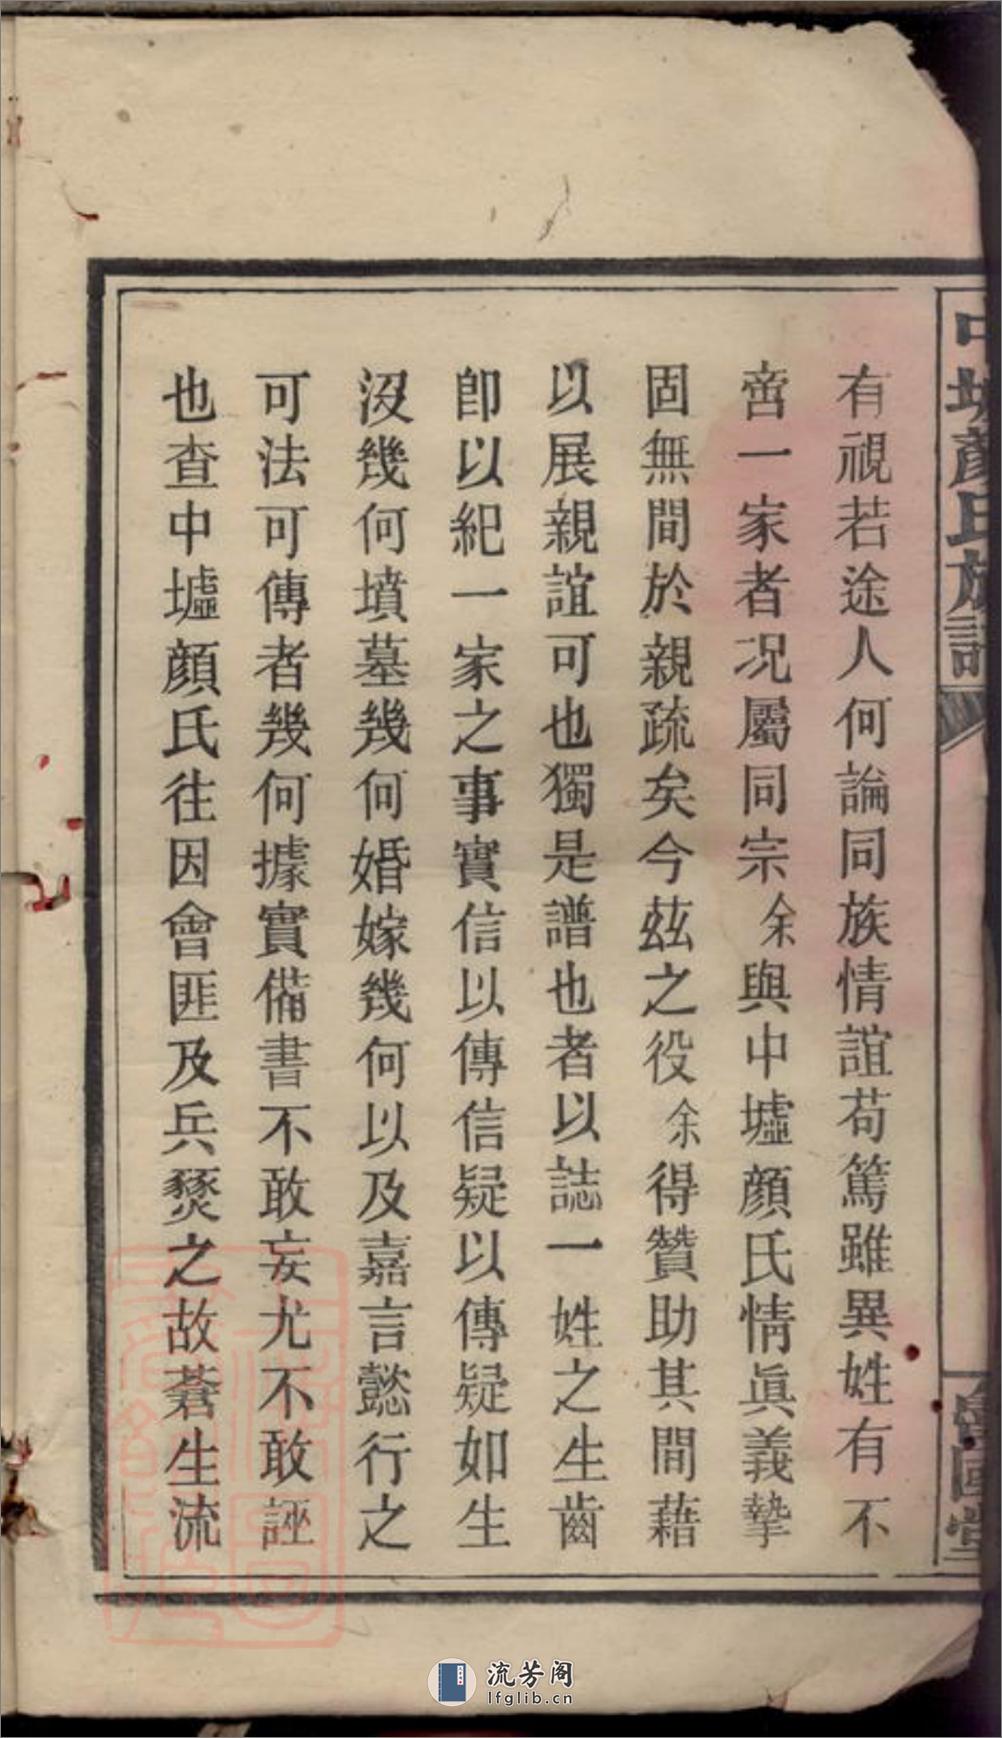 中墟顏氏族譜
魯國堂
有視若途人何論同族情誼苟篤雖異姓有不
啻一家者况屬同宗余與中墟顏氏情眞義摯
固無間於親疏矣今茲之役余得贊助其間藉
以展親誼可也獨是譜也者以誌一姓之生齒
卽以紀一家之事實信以傳信疑以傳疑如生
沒幾何墳墓幾何婚嫁幾何以及嘉言懿行之
可法可傳者幾何據實備書不敢妄尤不敢誣
也查中墟顏氏往因會匪及兵燹之故蒼生流
流芳阁
lfglib.cn